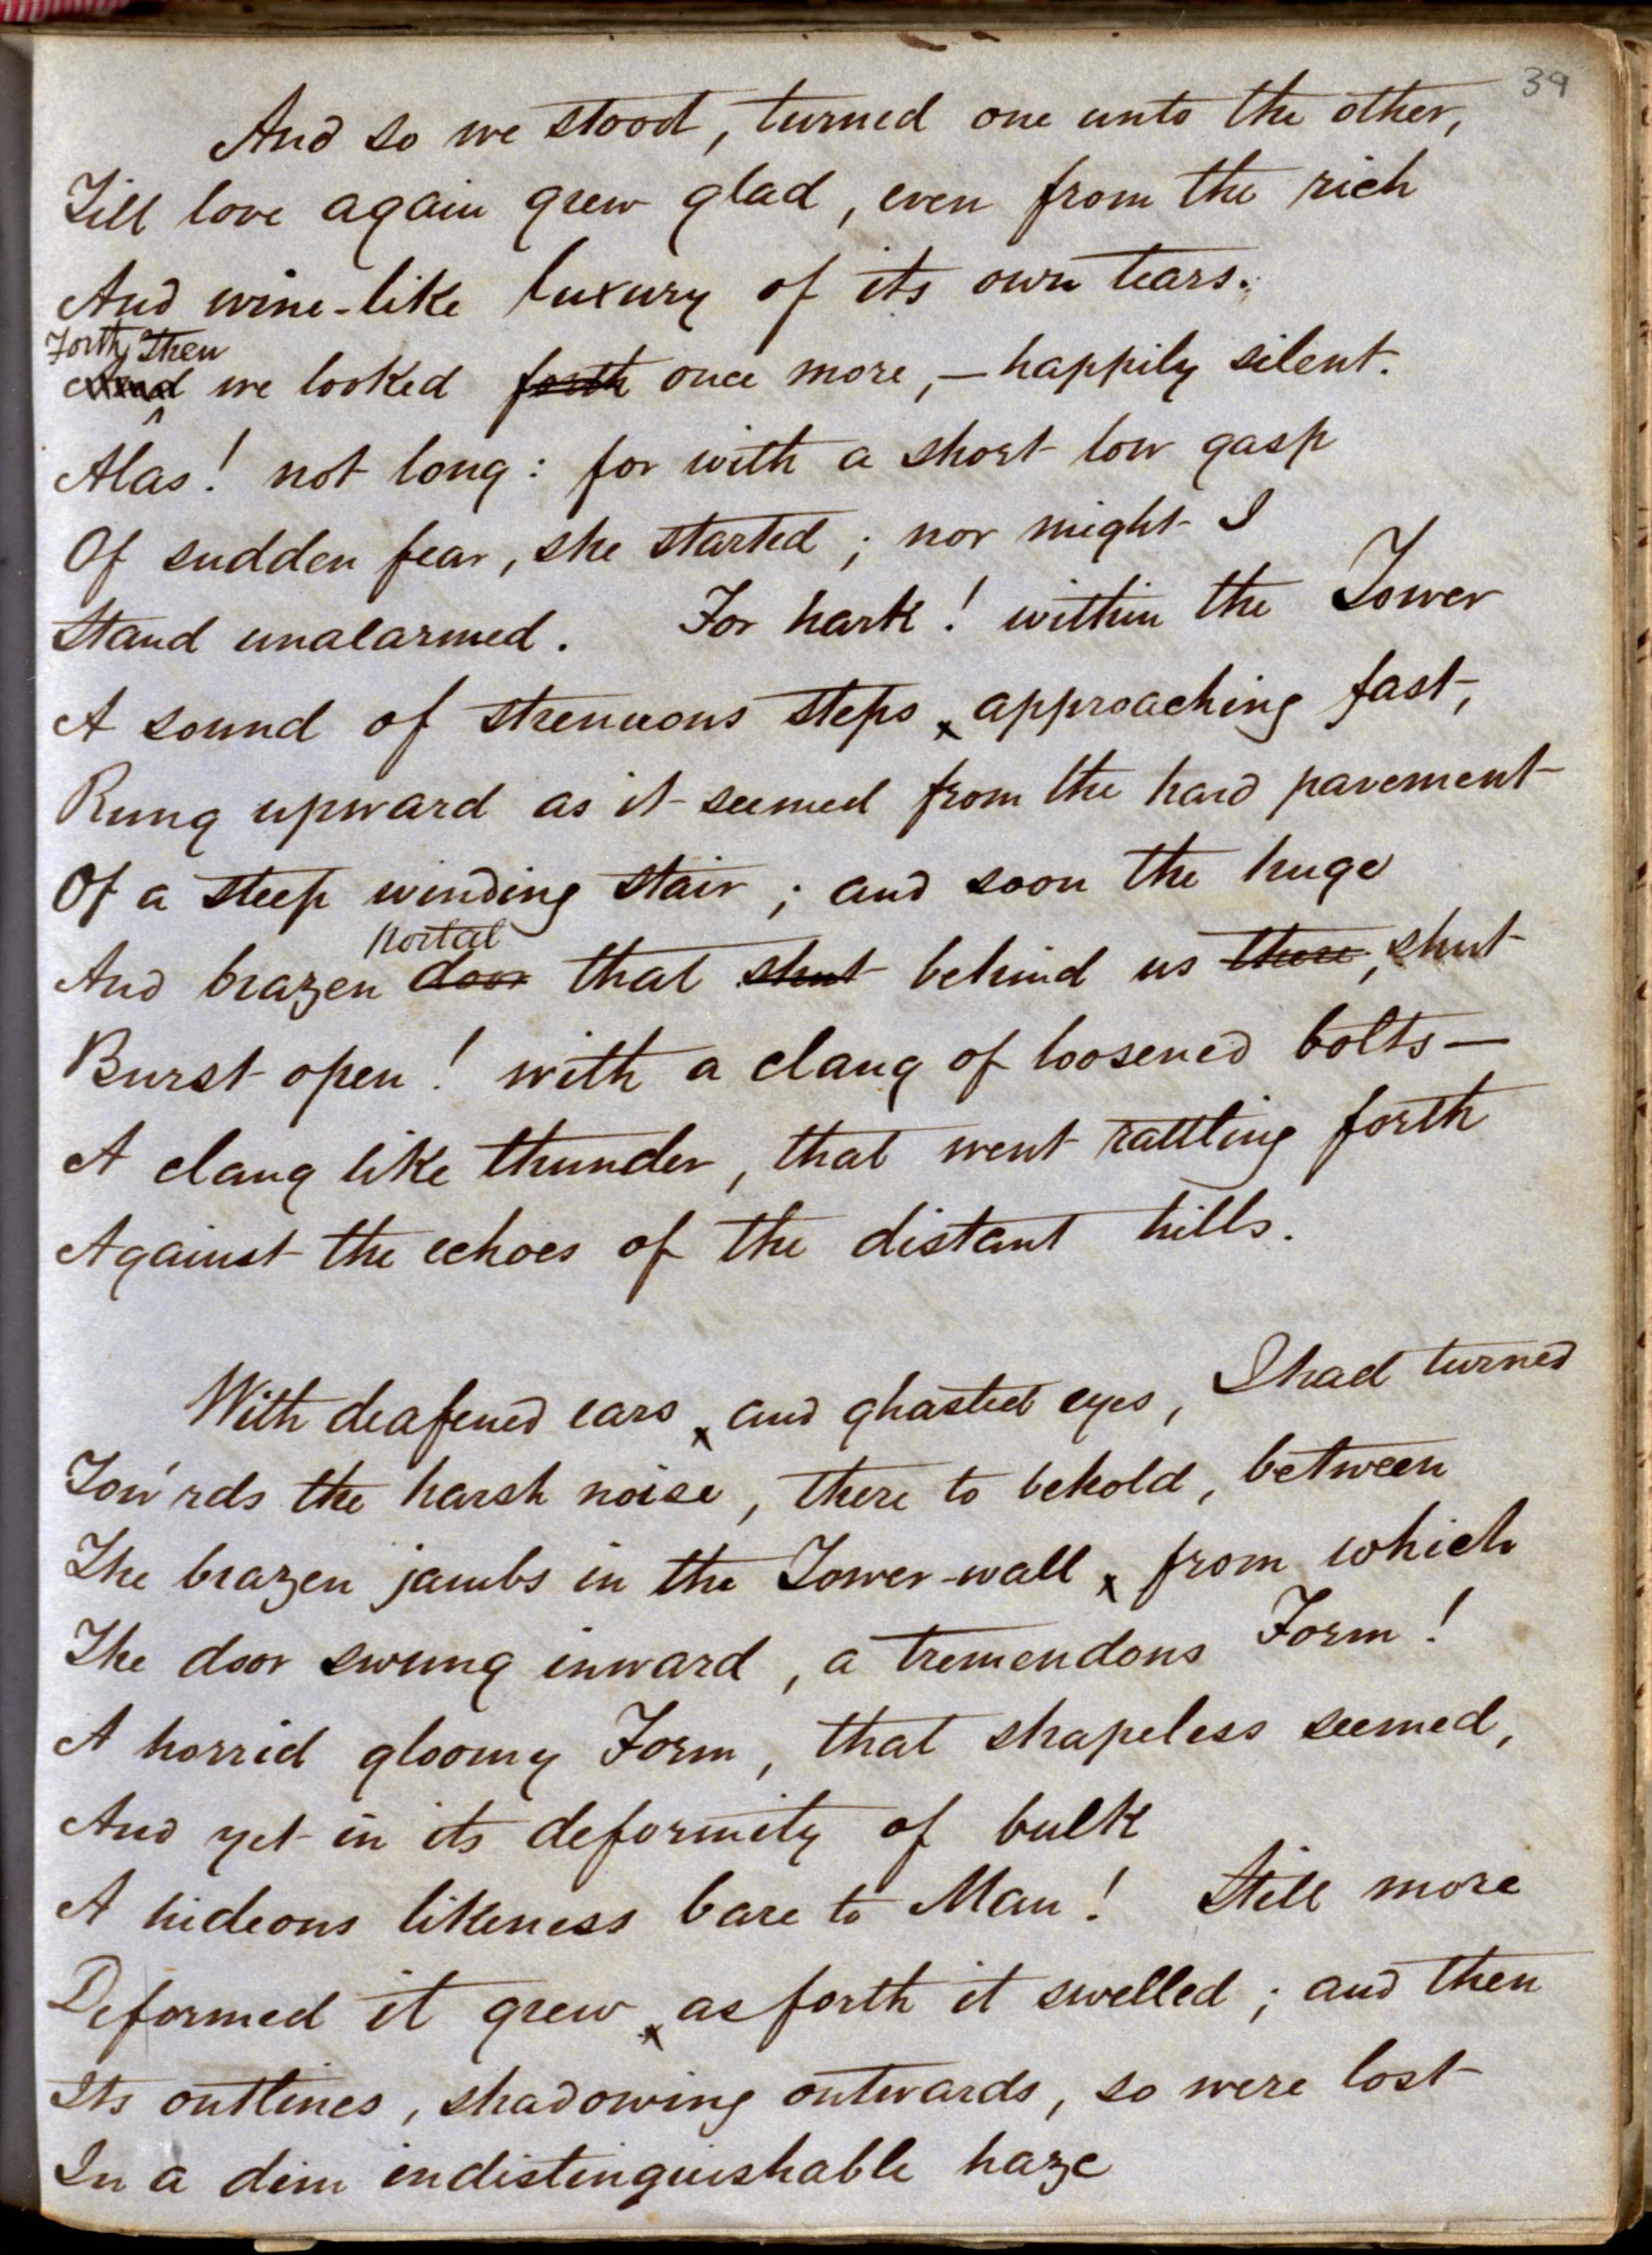 39
And so we stood, turned one unto the other,
Till love again grew glad, even from the rich
And wine-like luxury of its own tears.
Forth, then
And we looked forth once more, — happily silent.
Alas! not long: for with a short low gasp
Of sudden fear, she started; nor might I
Stand unalarmed. For hark! within the Tower
A sound of strenuous steps approaching fast,
Rung upward as it seemed from the hard pavement
Of a steep winding stair; and soon the huge
portal
And brazen door that shut behind us there, shut
Burst open! with a clang of loosened bolts—
A clang like thunder, that went rattling forth
Against the echoes of the distant hills.
With deafened ears and ghasted eyes, I had turned
Tow'rds the harsh noise, there to behold, between
The brazen jambs in the Tower-wall from which
The door swung inward, a tremendous Form!
A horrid gloomy Form, that shapeless seemed,
And yet in its deformity of bulk
A hideous likeness bare to Man! Still more
Deformed it grew as forth it swelled; and then
Its outlines, shadowing outwards, so were lost
In a dim indistinguishable haze